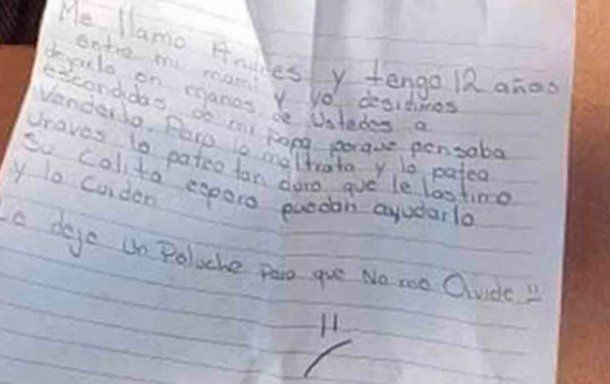 Me llamo Andres y tengo 12 años
entre mi mami y yo desidimos
dejarlo en manos de Ustedes a
escondidas de mi Papa porque pensaba
Venderlo. Pero lo maltrata y lo patea
Uraves lo pateo tan duro que le lastimo
Su Colita espero puedan ayudarlo
y lo Cuiden
Le deje Un Peluche Para que No me Olvide !!